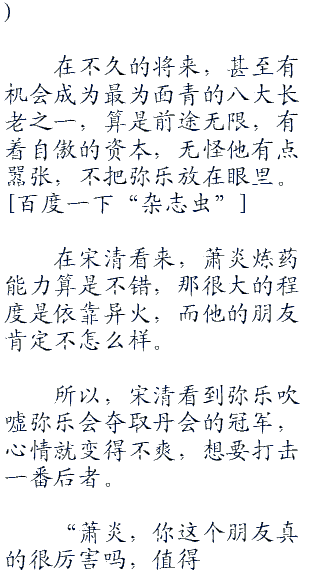 )
在不久的将来，甚至有
机会成为最为面青的八大长
老之一，算是前途无限，有
着自傲的资本，无怪他有点
嚣张，不把弥乐放在眼里。
[百度一下“杂志虫”]
在宋清看来，萧炎炼药
能力算是不错，那很大的程
度是依靠异火，而他的朋友
肯定不怎么样。
所以，宋清看到弥乐吹
嘘弥乐会夺取丹会的冠军，
心情就变得不爽，想要打击
一番后者。
“萧炎，你这个朋友真
的很厉害吗，值得